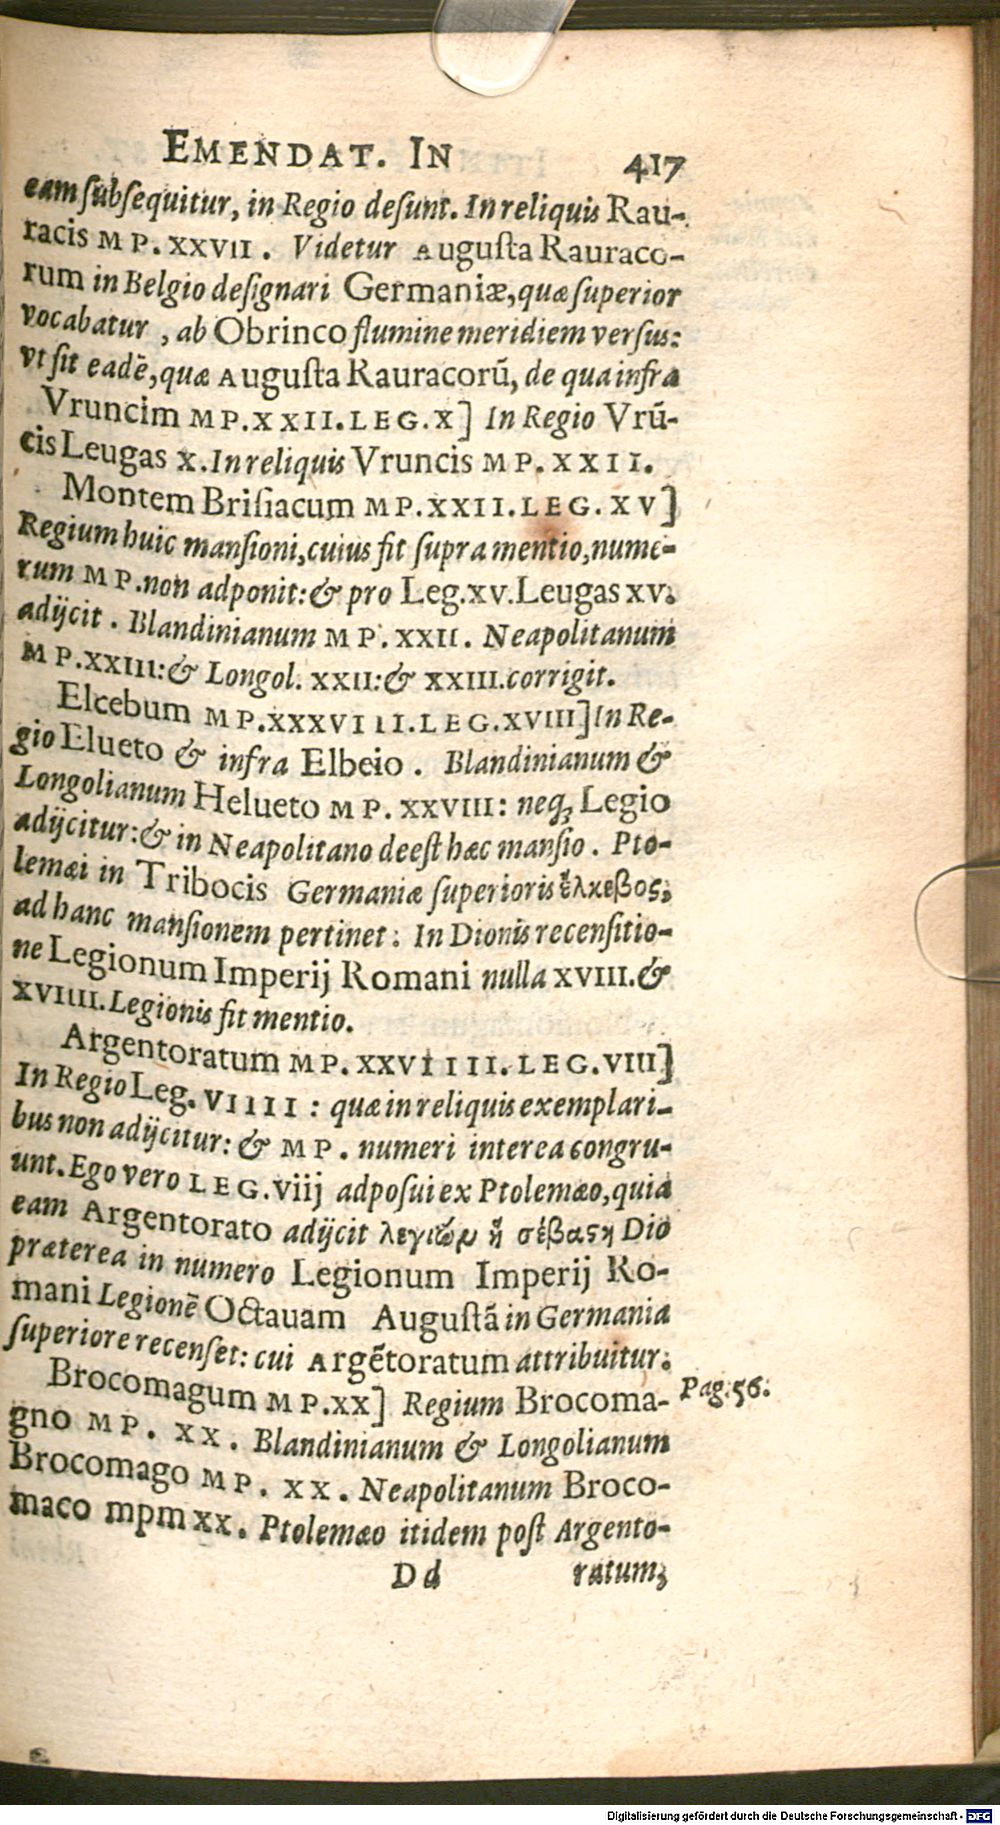 EMENDAT. IN 417
eam ſubſequitur, in Regio deſunt. In reliquis Rau-
racis MP. XXVII. Videtur Auguſta Rauraco-
rum in Belgio deſignari Germaniæ, quæ ſuperior
vocabatur, ab Obrinco flumine meridiem verſus:
vt ſit eadē, quæ Auguſta Rauracorū, de qua infra
Vruncim MP. XXII. LEG. X] In Regio Vrū-
cis Leugas X. In reliquis Vruncis MP. XXII.
Montem Briſiacum MP. XXII. LEG. XV]
Regium huic manſioni, cuius fit ſupra mentio, nume-
rum MP. non adponit: & pro Leg. xv. Leugas xv.
adijcit. Blandinianum MP. XXII. Neapolitanum
MP. XXIII: & Longol. XXII: & XXIII. corrigit.
Elcebum MP. XXXVIIII. LEG. XVIII] In Re-
gio Elueto & infra Elbeio. Blandinianum &
Longolianum Helueto MP. XXVIII: neq; Legio
adijcitur: & in Neapolitano deeſt hæc manſio. Pto-
lemæi in Tribocis Germaniæ ſuperioris ἔλκεβος,
ad hanc manſionem pertinet. In Dionis recenſitio-
ne Legionum Imperij Romani nulla XVIII. &
XVIIII. Legionis fit mentio.
Argentoratum MP. XXVIIIII. LEG. VIII]
In Regio Leg. VIIII: quæ in reliquis exemplari-
bus non adijcitur: & MP. numeri interea congru-
unt. Ego vero LEG. viij adpoſui ex Ptolemæo, quia
eam Argentorato adijcit λεγιὼν ἡ σέβαϛη Dio
præterea in numero Legionum Imperij Ro-
mani Legionē Octauam Auguſtā in Germania
ſuperiore recenſet: cui Argētoratum attribuitur.
Brocomagum MP. XX] Regium Brocoma- Pag. 56.
gno MP. XX. Blandinianum & Longolianum
Brocomago MP. XX. Neapolitanum Broco-
maco mpm xx. Ptolemæo itidem poſt Argento-
Dd ratum,
Digitalisierung gefördert durch die Deutsche Forschungsgemeinschaft - DFG